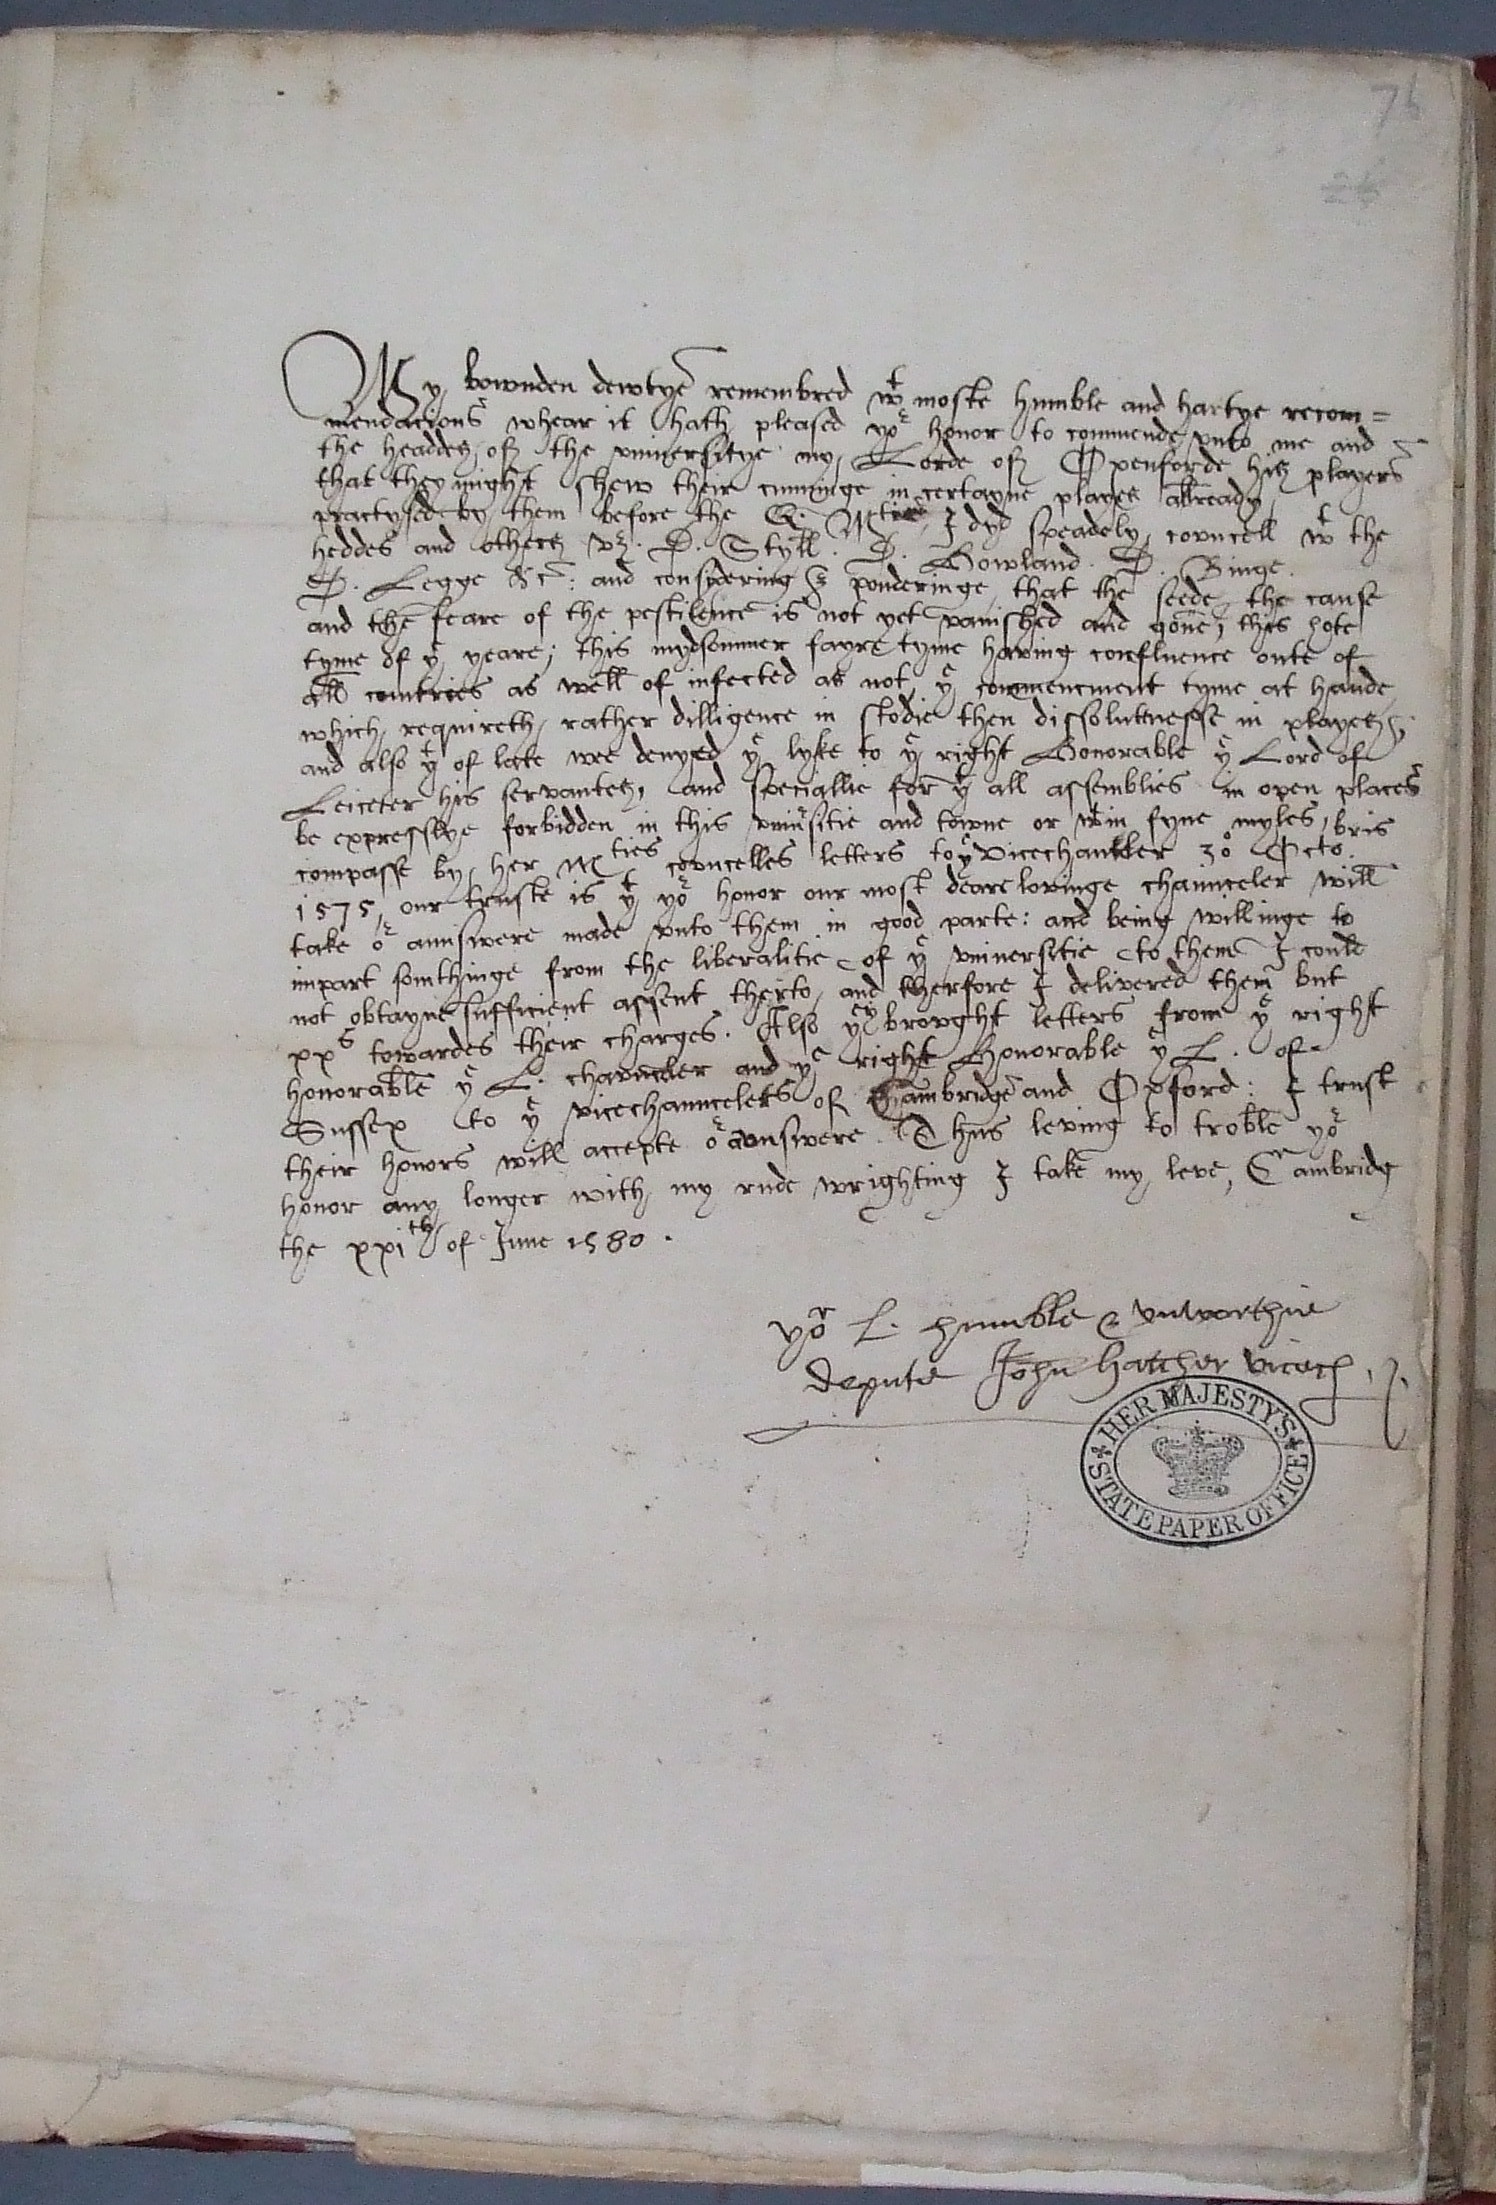 76
26
My bownden dewtye remembred wt moste humble and hartye recom=
mendacions whear it hath pleased yor honor to commende vnto me and
the headdes of the vniversitye my Lorde of Oxenforde his players
that they might shew their cunninge in certayne playes allready
practysed by them before the Q. Mties I dyd speadely cowncell wt the
heddes and others vz. D. Styll. D. Howland. D. Binge.
D. Legge &c: and considering & ponderinge that the seede, the cause
and the feare of the pestilence is not yet vanished and gone, this hote
tyme of ye yeare; this mydsommer fayre tyme having confluence oute of
all contries as well of infected as not, ye commencment tyme at hande
which requireth rather dilligence in stodie then dissolutnesse in playes;
and also yt of late wee denyed ye lyke to ye right Honorable ye Lord of
Leiceter his servantes, and speciallie for yt all assemblies in open places
be expresslye forbidden in this vniursitie and towne or wtin fyue myles, bris
compasse by her Mties cowncelles letters to ye vicechanceler 30 Octo
1575, our truste is yt yor honor our most deare lovinge chaunceler will
take or aunswere made vnto them in good parte: and being willinge to
impart somthinge from the liberalitie of ye vniversitie to them I could
not obtayne sufficient assent therto, and therfore I delivered them but
xxs towardes their charges. Also yey brought letters from ye right
honorable ye L. chaunceler and ye right Honorable ye L. of
Sussex to ye vicechauncelers of Cambridge and Oxford: I trust
their honors will accepte or aunswere. Thus leving to troble yor
honor any longer with my rude wrighting I take my leve, Cambridg
the xxith of June 1580.
yor L. humble & vnworthie
depute John Hatcher vicech.
HER MAJESTY'S
STATE PAPER OFFICE